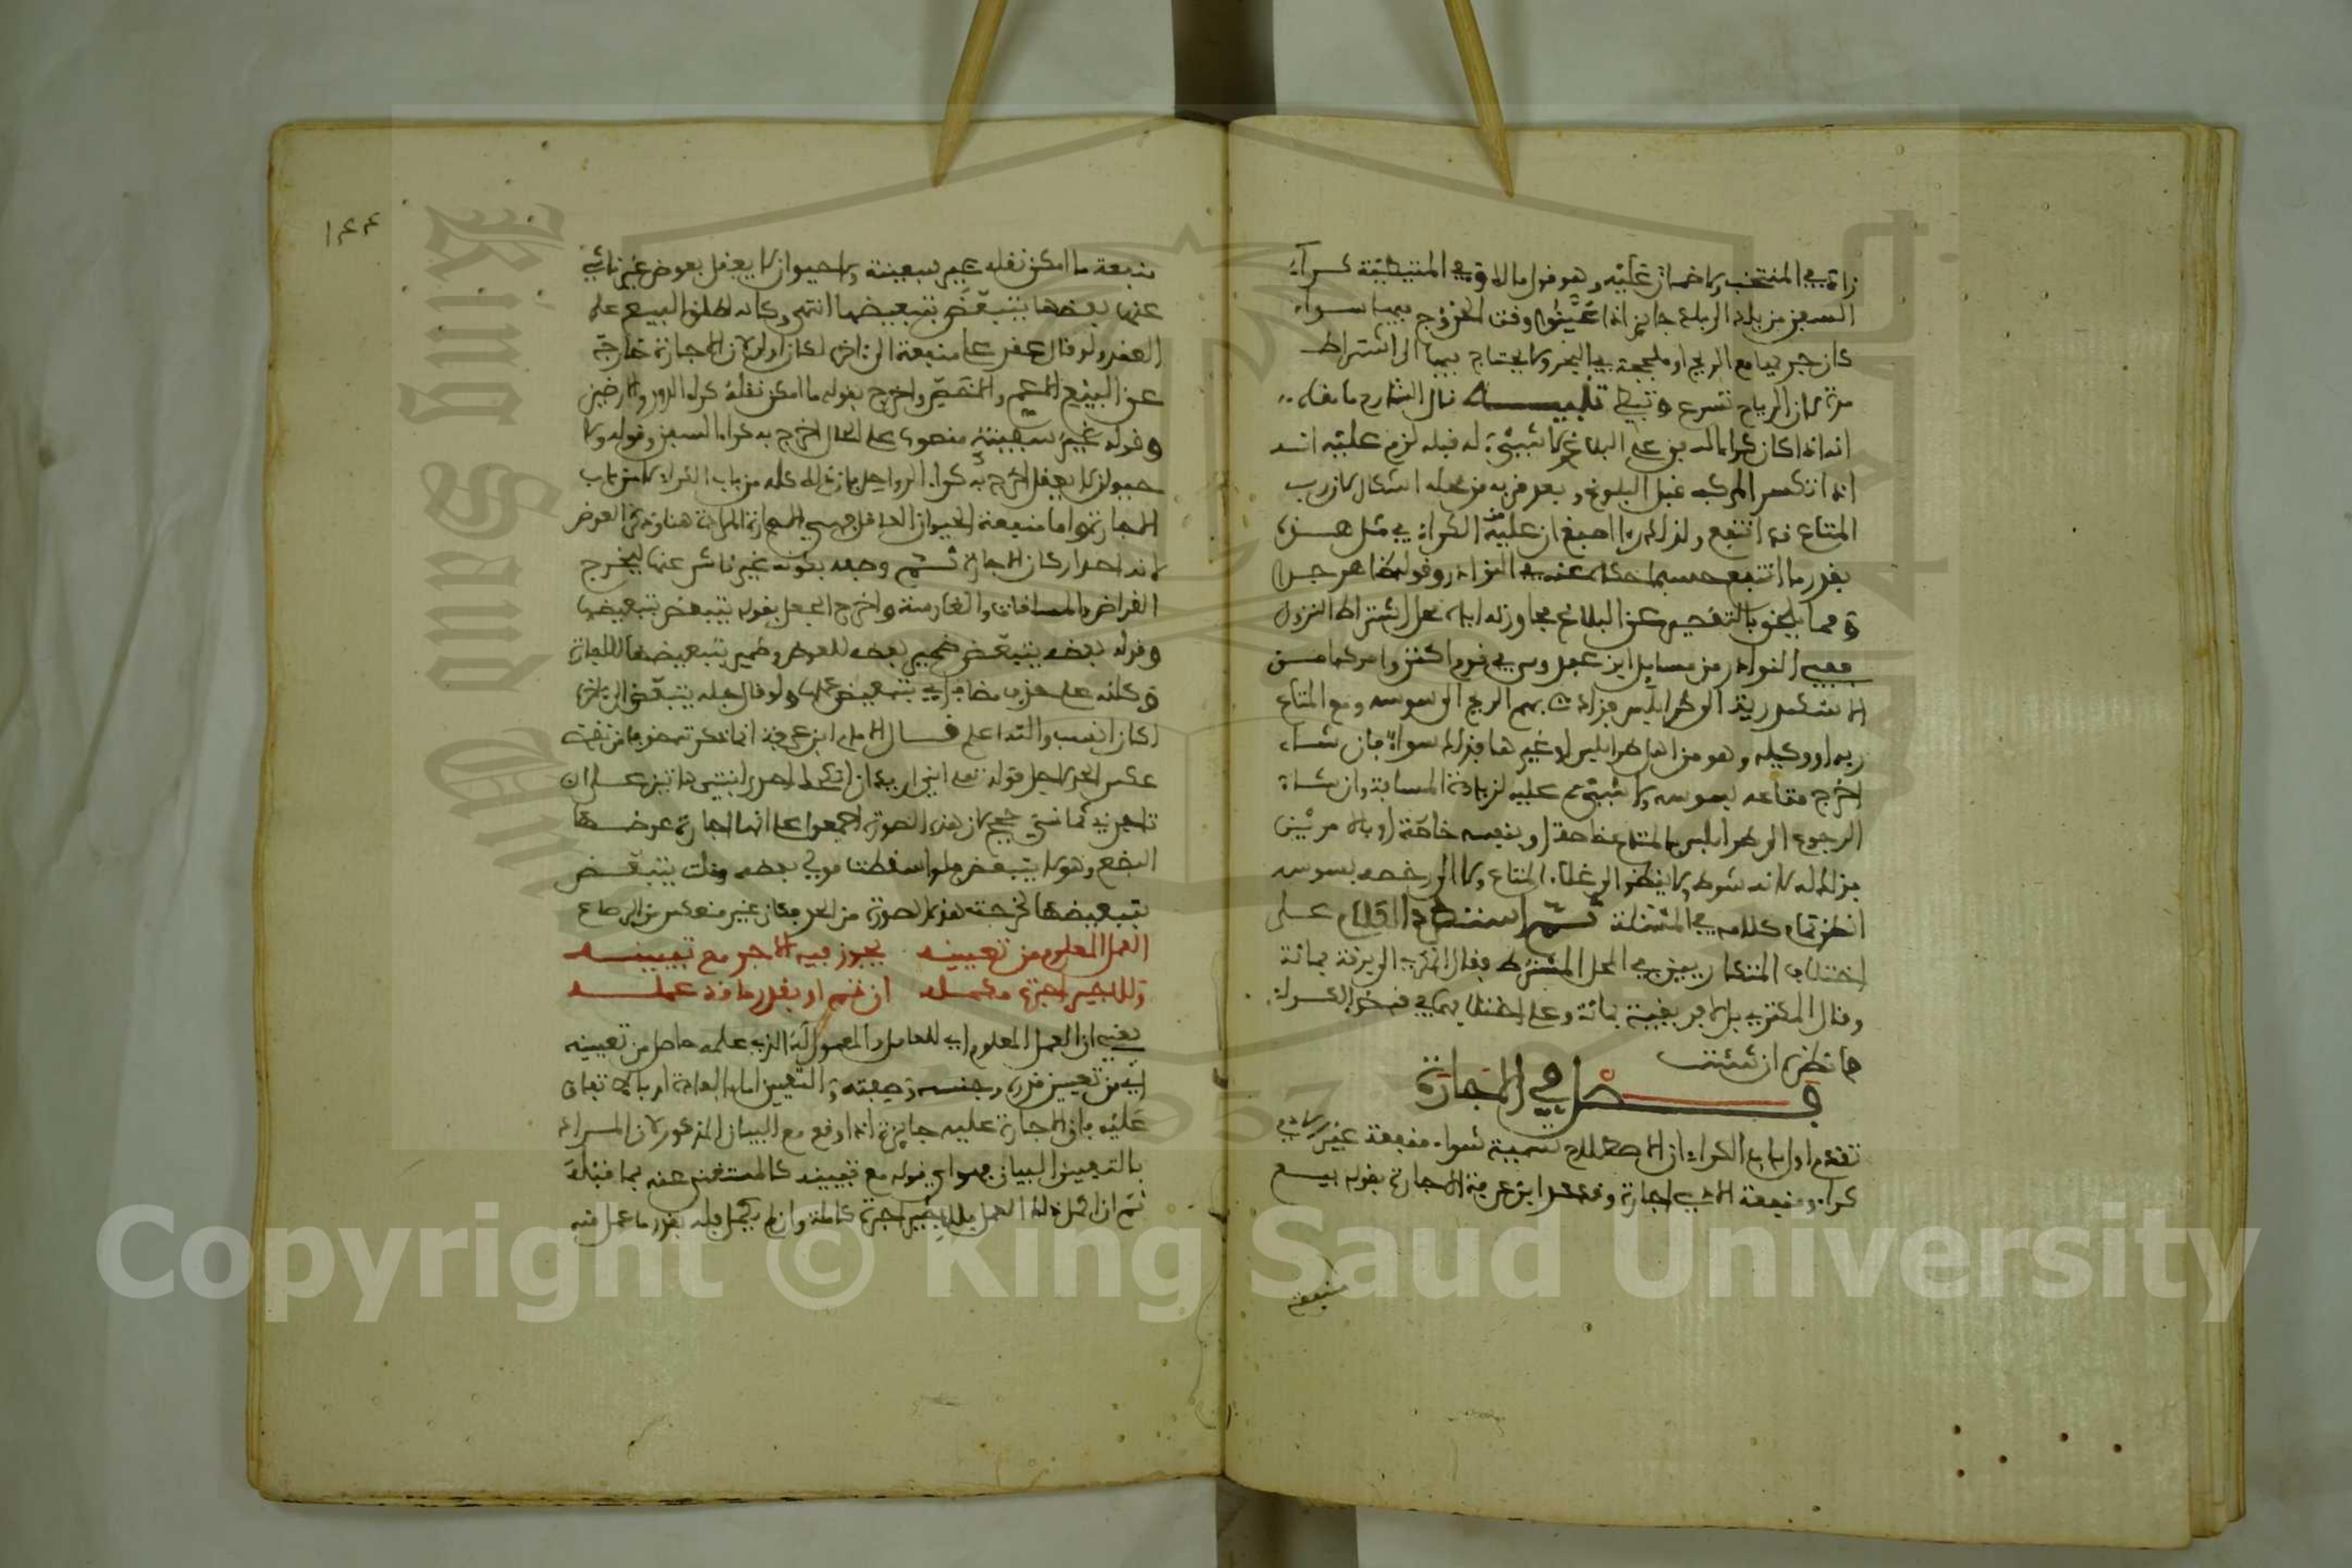 زاد في المنتخب ولا ضمان عليه وهو قول مالك وفي المتيطية كراء
السفن من بلد الى بلد جايز اذا عينوا وقت الخروج فيها سواء
كان جريها مع الريح او ملججة في البحر ولا يحتاج فيها الى اشتراط
مدة لان الرياح تسرع وتبطئ تنبيه قال الشارح ما نصه
انه اذا كان كراها له من على البلاغ ولا شيء له قبله لزم عليه انه
اذا انكسر المركب قبل البلوغ وبعد قربه من محله اشكال لان رب
المتاع قد انتفع ولذلك را اصبغ ان عليه من الكراء في مثل هذا
بقدر ما انتفع حسبما حكاه عنه في النوادر وقوله ظاهر جدا
ومما يلحق بالتفحيم عن البلاغ مجاوزته اياه محل اشتراط النزول
ففي النوادر من مسايل ابن عبدوس في قوم اكتروا مركبا من
الاسكندرية الى طرابلس فزادت بهم الريح الى سوسه ومع المتاع
ربه او وكيله وهو من اهل طرابلس او غيرها فذلك سواء فان شاء
اخرج متاعه بسوسه ولا شيء عليه لزيادة المسافة وان شاء
الرجوع الى طرابلس بالمتاع خاصة او بنفسه خاصة او بالامرين
فذلك له لانه شرطه ولا ينظر الى غلاء المتاع ولا الى رخصه بسوسه
انظر تمام كلامه في المسئلة ثم استطرد الكلام على
اختلاف المتكاريين في المحل المشترط فقال المكري الى برقة بمائة
وقال المكتري بل الى افريقية بمائة وعلى اختلافهما في قبض الكراء
فانظره ان شئت
فصل في الاجارة
تقدم اول باب الكراء ان الاصطلاح تسمية شراء منفعة غير الادمي
كراء ومنفعة الادمي اجارة وقد حد ابن عرفة الاجارة بقوله بيع
منفعة
١٤٤
منفعة ما امكن نقله غير سفينة ولا حيوان لا يعقل بعوض غير ناشئ
عنها بعضه يتبعض بتبعيضها انتهى وكانه اطلق البيع على
العقد ولو قال عقد على منفعة الى اخره لكان اولى لان الاجارة خارجة
عن البيع الاعم والاخص واخرج بقوله ما امكن نقله كراء الدور والارضين
وقوله غير سفينة منصوب على الحال اخرج به كراء السفن وقوله ولا
حيوان لا يعقل اخرج به كراء الرواحل فان ذلك كله من باب الكراء لا من باب
الاجارة واما منفعة الحيوان العاقل فهي الاجارة المرادة هنا وزاد العوض
لانه احد اركان الاجارة ثم وصفه بكونه غير ناشئ عنها ليخرج
القراض والمساقات والمغارسة واخرج الجعل بقوله يتبعض بتبعيضها
وقوله بعضه يتبعض ضمير بعضه للعوض وضمير بتبعيضها للاجارة
وكانه على حذف مضاف اي بتبعيض عملها ولو قال جله يتبعض الى اخره
لكان انسب والله اعلم قال الامام ابن عرفة انما ذكرت بعض خوف نقض
عكس الحد لاجل قوله تعالى اني اريد ان انكحك احدى ابنتي هاتين على ان
تاجرني ثماني حجج لان هذه الصورة اجمعوا على انها اجارة عوضها
البضع وهو لا يتبعض فلو اسقطت قولي بعضه وقلت يتبعض
بتبعيضها لخرجت هذه الصورة من الحد فكان غير منعكس من الرصاع
العمل المعلوم من تعيينه يجوز فيه الاجر مع تبيينه
وللاجير اجرة مكملة ان تم او بقدر ما قد عمله
يعني ان العمل المعلوم اي للعامل والمعمول له الذي علمه حاصل من تعيينه
اي من تعيين قدره وجنسه وصفته والتعيين اما بالعادة او بالاتفاق
عليه فان الاجارة عليه جايزة اذا وقع مع البيان المذكور لان المراد
بالتعيين البيان فهو اي قوله مع تبيينه كالمستغنى عنه بما قبله
ثم ان اكمل ذلك العمل فللاجير اجرة كاملة وان لم يكمل فله بقدر ما عمل منه
Copyright © King Saud University
King Saud University
1957